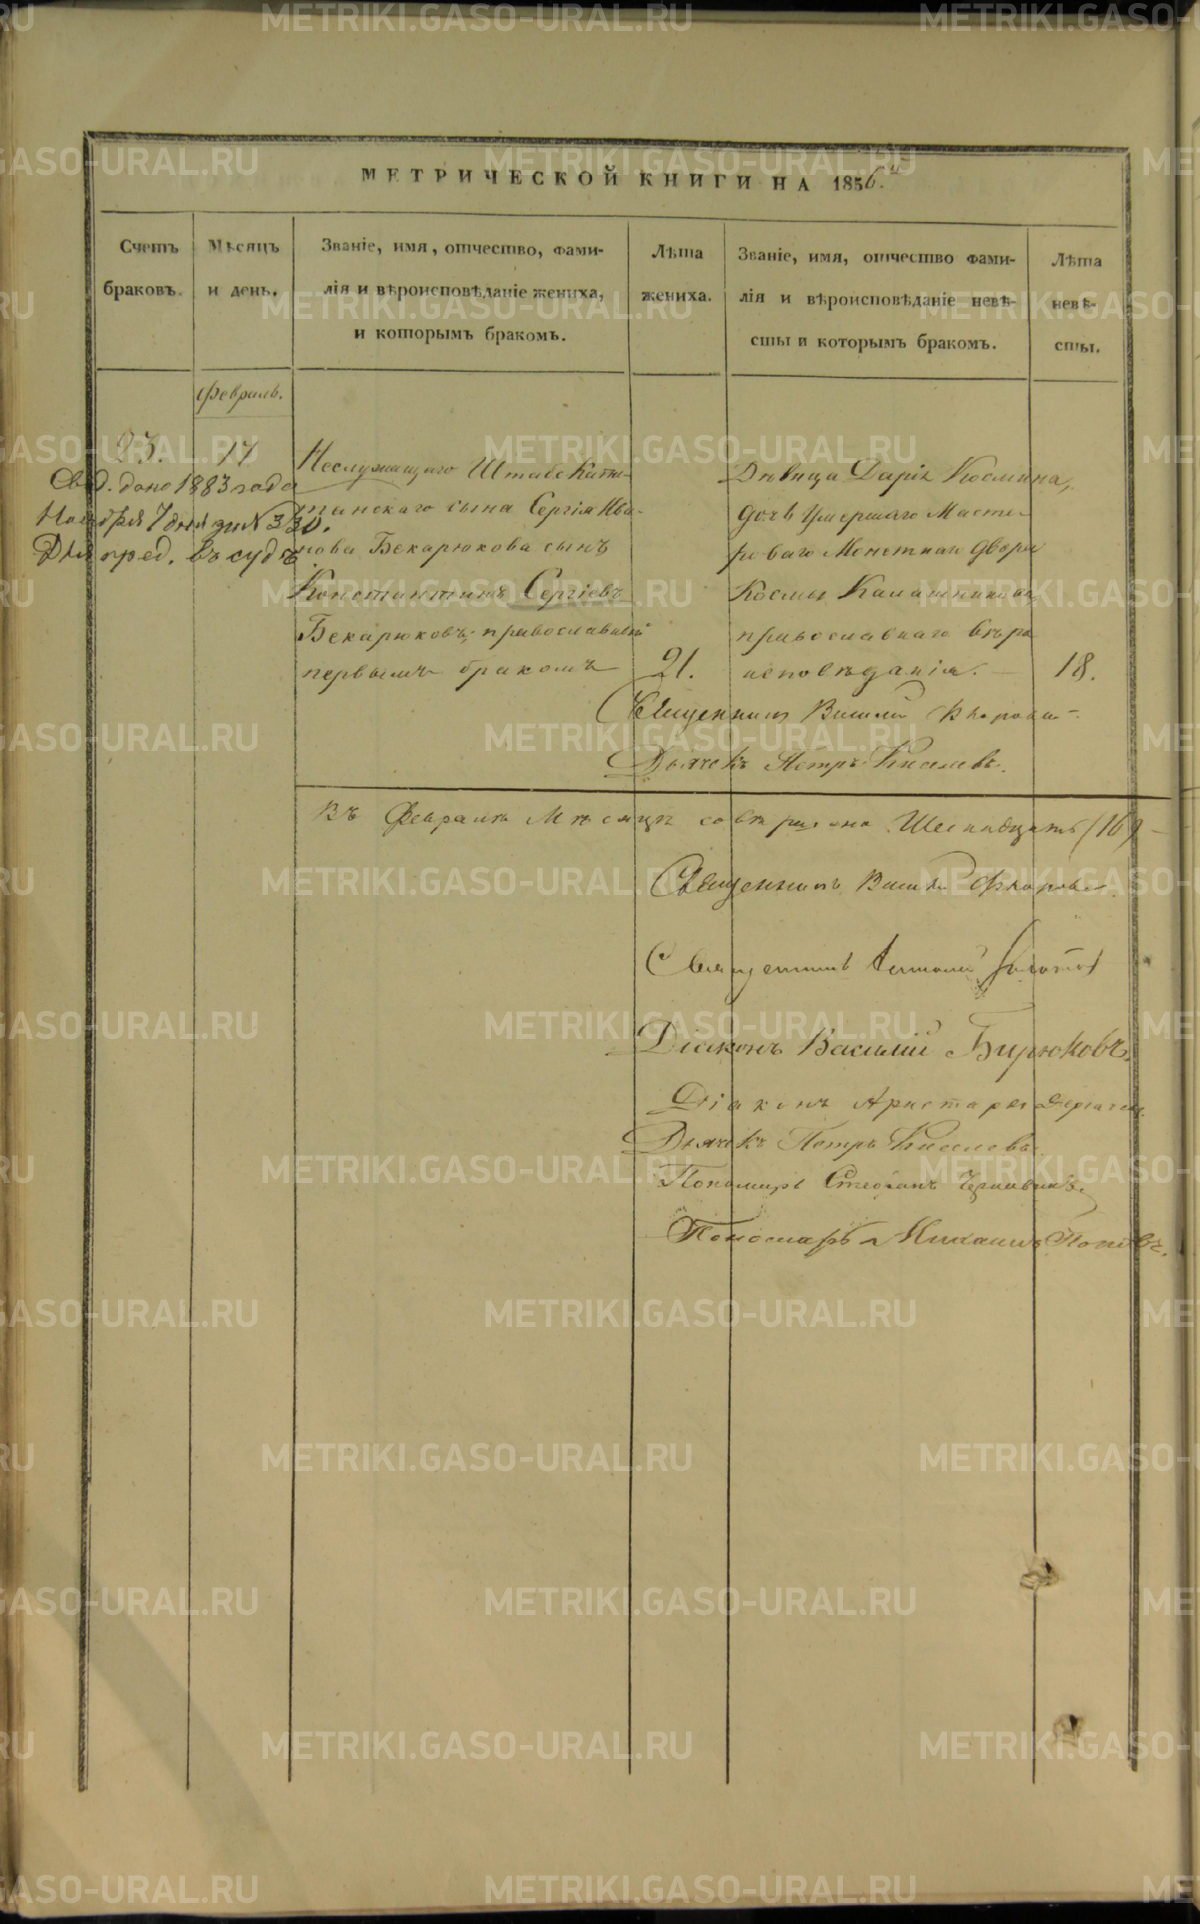 МЕТРИЧЕСКОЙ КНИГИ НА 1856.
Счетъ браковъ.
Мѣсяцъ и день.
Званіе, имя, отчество, фами-
лія и вѣроисповѣданіе жениха,
и которымъ бракомъ.
Лѣта жениха.
Званіе, имя, отчество фами-
лія и вѣроисповѣданіе невѣ-
сты и которымъ бракомъ.
Лѣта невѣ-
сты.
Февраль.
23.
17
Свид. дано 1883 года
Ноября 7 дня за № 330.
Для пред. въ судъ
Неслужащаго Штабс Капи-
танскаго сына Сергія Ива-
нова Бекарюкова сынъ
Константинъ Сергіевъ
Бекарюковъ, православный
первымъ бракомъ
21.
Дѣвица Дарія Космина,
дочь умершаго Масте-
роваго Монетнаго двора
Космы Калашникова,
православнаго вѣро
исповѣданія.
18.
Священникъ Василій
Дьячекъ Петръ Киселевъ.
Въ Февралѣ Мѣсяцѣ совершено Шеснадцать (16)
Священникъ Василій
Священникъ
Діаконъ Василій Бирюковъ.
Діаконъ Аристархъ
Дьячекъ Петръ Киселевъ
Пономарь Стефанъ
Пономарь Михаилъ Поповъ.
METRIKI.GASO-URAL.RU